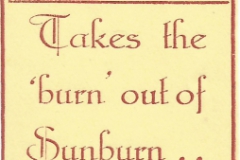 Takes the
'burn' out of
Sunburn . .